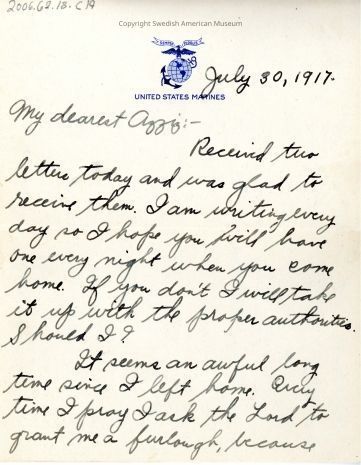 2006.62.13.C1A
Copyright Swedish American Museum
SEMPER FIDELIS
UNITED STATES MARINES
July 30, 1917.
My dearest Azzie:-
Received two
letters today and was glad to
receive them. I am writing every
day so I hope you will have
one every night when you come
home. If you don't I will take
it up with the proper authorities.
Should I?
It seems an awful long
time since I left home. Every
time I pray I ask the Lord to
grant me a furlough, because